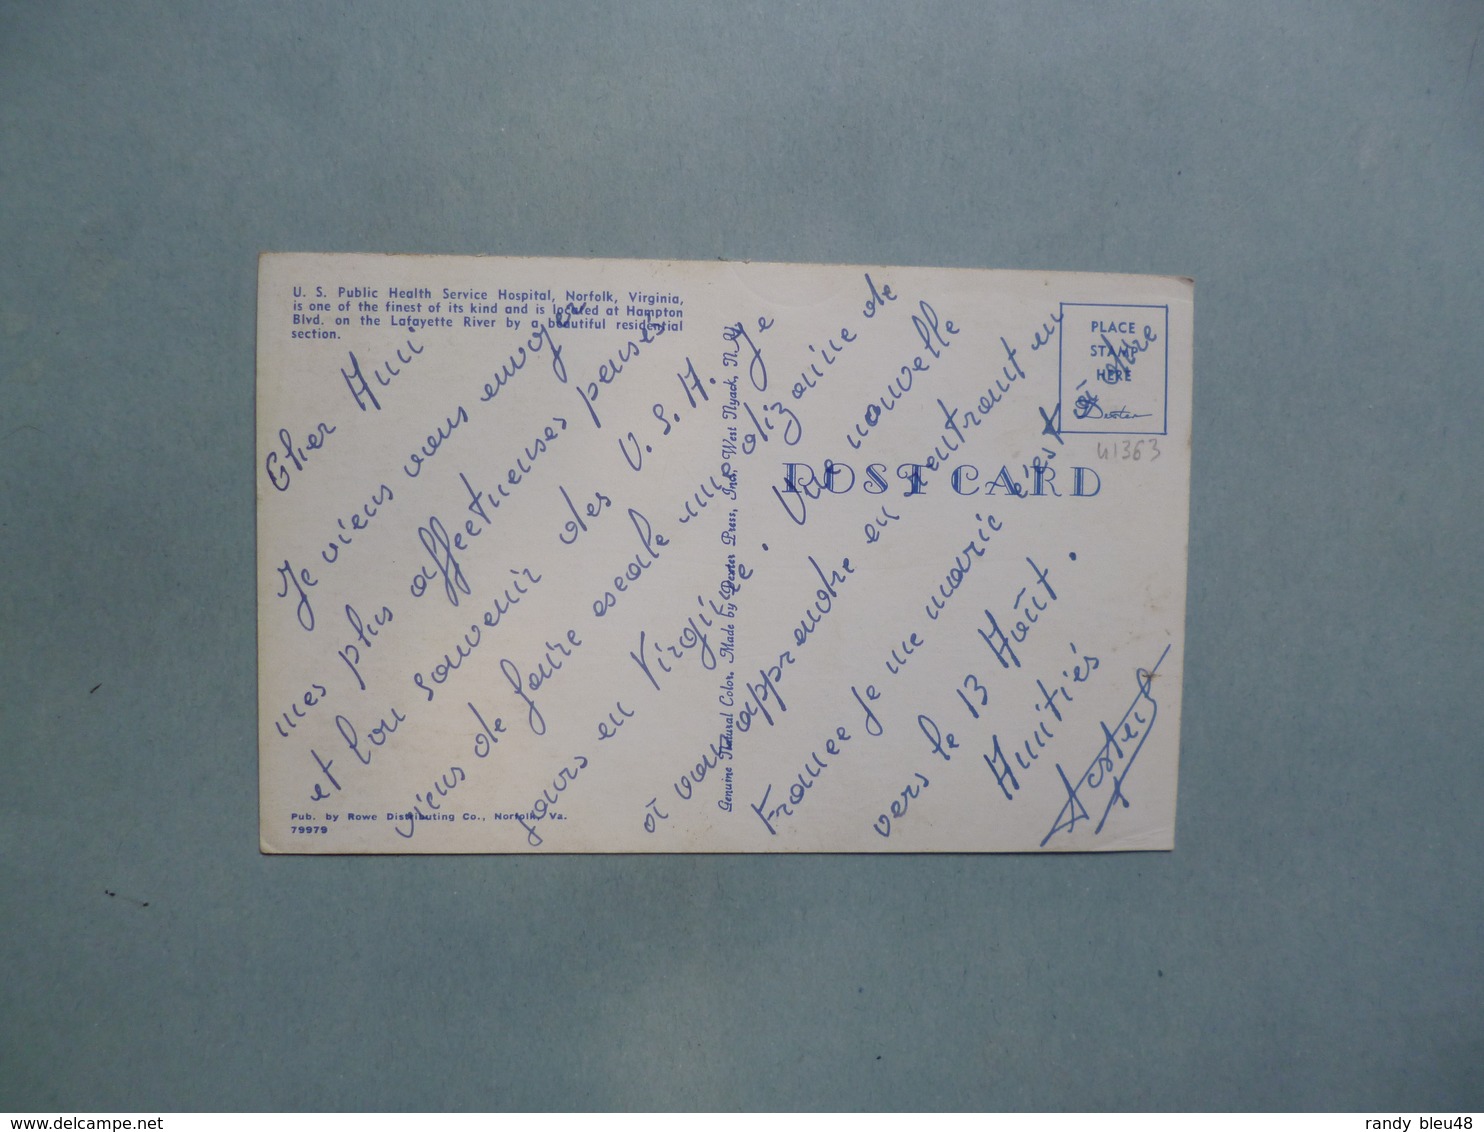 U. S. Public Health Service Hospital, Norfolk, Virginia,
is one of the finest of its kind and is located at Hampton
Blvd. on the Lafayette River by a beautiful residential
section.
PLACE
STAMP
HERE
Dexter
41363
POST CARD
Cher Ami
Je viens vous envoyer
mes plus affectueuses pensées
et bon souvenir des U.S.A. Je
viens de faire escale une dizaine de
jours en Virginie. Une nouvelle
à vous apprendre en rentrant en
France je me marie c'est à dire
vers le 13 Août.
Amitiés
Genuine Natural Color, Made by Dexter Press, Inc., West Nyack, N.Y.
Pub. by Rowe Distributing Co., Norfolk, Va.
79979
randy bleu48